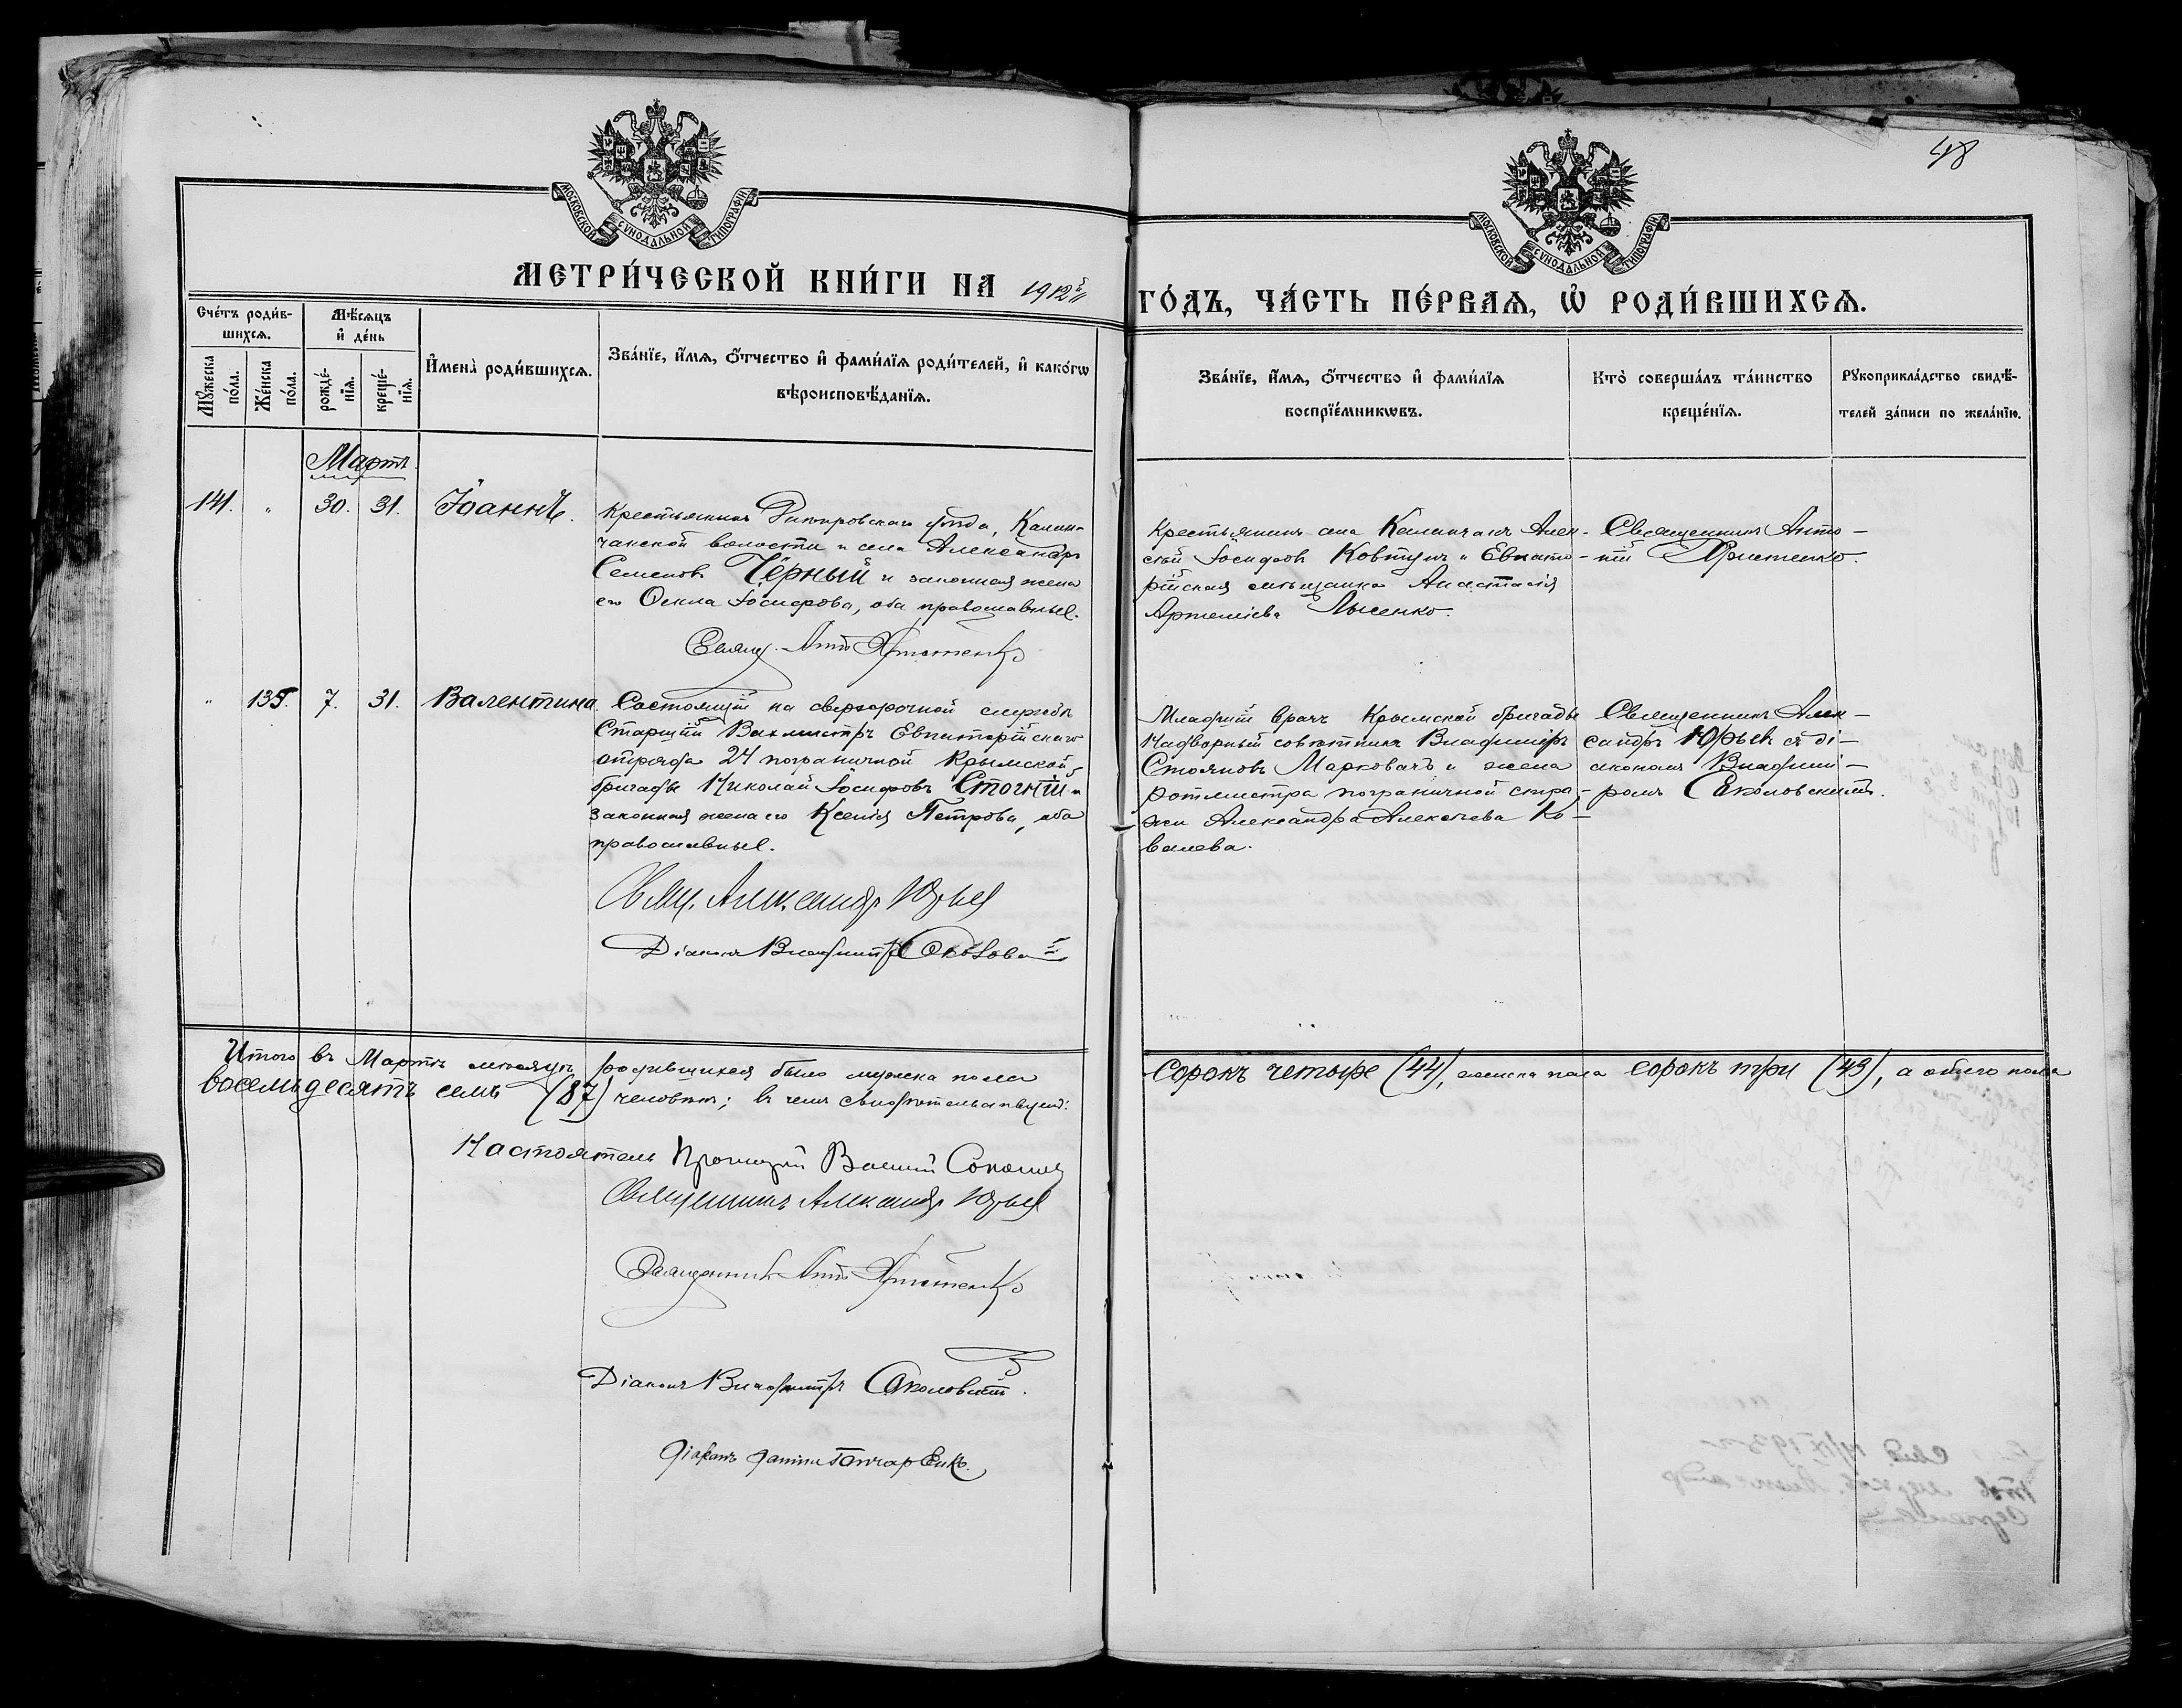 48
МОСКОВСКОЙ СѴНОДАЛЬНОЙ ТИПОГРАФІИ
МОСКОВСКОЙ СѴНОДАЛЬНОЙ ТИПОГРАФІИ
МЕТРИ́ЧЕСКОЙ КНИ́ГИ НА 1912й ГО́ДЪ, ЧА́СТЬ ПЕ́РВАѦ, Ѡ҆ РОДИ́ВШИХСѦ.
Сче́тъ роди́в-
шихсѧ.
Мѣ́сѧцъ
и҆ де́нь
Мꙋ́жеска
по́ла.
Же́нска
по́ла.
рожде́-
нїѧ.
креще́-
нїѧ.
И҆мена̀ роди́вшихсѧ.
Зва́нїе, и҆́мѧ, ѻ҆́тчество и҆ фами́лїѧ роди́телей, и҆ како́гѡ
вѣроисповѣ́данїѧ.
Зва́нїе, и҆́мѧ, ѻ҆́тчество и҆ фами́лїѧ
воспрїе́мникѡвъ.
Кто̀ соверша́лъ та́инство
креще́нїѧ.
Рꙋкоприкла́дство свидѣ́-
телей за́писи по жела́нїю.
Мартъ
141. " 30. 31. Іоаннъ.
Крестьянинъ Днѣпровскаго уѣзда, Калан-
чакской волости и села Александръ
Семеновъ Черный и законная жена
его Ѳекла Іосифова, оба православные.
Свящ. Ант. Христенко
Крестьянинъ села Каланчакъ Алек-
сѣй Іосифовъ Ковтунъ и Евпато-
рійская мѣщанка Анастасія
Артеміева Лысенко.
Священникъ Анто-
ній Христенко.
" 135. 7. 31. Валентина
Состоящій на сверхсрочной службѣ
Старшій Вахмистръ Евпаторійскаго
отряда 24 пограничной Крымской
бригады Николай Іосифовъ Стогній и
законная жена его Ксенія Петрова, оба
православные.
Свящ. Александръ Юрьев
Діаконъ Владиміръ Соколовскій
Младшій врачъ Крымской бригады
Надворный совѣтникъ Владиміръ
Стояновъ Марковичъ и жена
ротмистра пограничной стра-
жи Александра Алексѣева Ко-
валева.
Священникъ Алек-
сандръ Юрьевъ съ ді-
акономъ Владимі-
ромъ Соколовскимъ.
Итого въ Мартѣ мѣсяцѣ родившихся было мужеска пола сорокъ четыре (44), женска пола сорокъ три (43), а обоего пола
восемьдесятъ семь (87) человѣкъ; въ чемъ свидѣтельствуемъ:
Настоятель Протоіерей Василій
Священникъ Александръ Юрьев
Священникъ Ант. Христенко
Діаконъ Владиміръ Соколовскій.
Діаконъ Даніилъ Гончаренко.